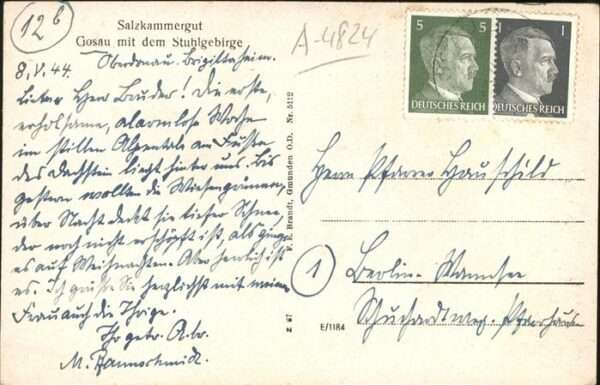 12 b
Salzkammergut
Gosau mit dem Stuhlgebirge
A-4824
Oberdonau. Brigittaheim.
8.V.44.
Lieber Herr Bruder! Die erste,
erholsame, alarmlose Woche
im stillen Alpentale am Fuße
des Dachstein liegt hinter uns. Bis
gestern wollten die Wiesen grünen,
über Nacht deckt sie tiefer Schnee,
der noch nicht erschöpft ist, als ginge
es auf Weihnachten. Aber herrlich ist
es. Ich grüße Sie herzlichst mit meiner
Frau auch die Ihrige.
Ihr getr. A.
M.
F. E. Brandt, Gmunden O.D. Nr. 5112
Z 67
E/1184
5 5
DEUTSCHES REICH
1 1
DEUTSCHES REICH
Herrn Pfarrer Hauschild
1
Berlin-Wannsee
Schuchardtweg. Pfarrhaus